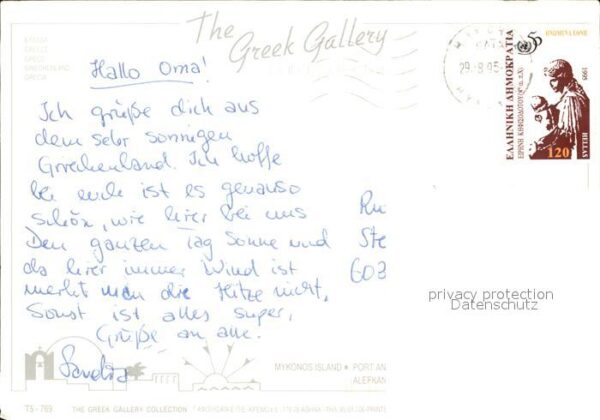 The
Greek Gallery
GREECE
Hallo Oma!
Ich grüße dich aus
dem sehr sonnigen
Griechenland. Ich hoffe
bei euch ist es genauso
schön, wie hier bei uns
Den ganzen Tag Sonne und
da hier immer Wind ist
merkt man die Hitze nicht,
Sonst ist alles super,
Grüße an alle.
Sandra
29·8·95
50
ΗΝΩΜΕΝΑ ΕΘΝΗ
ΕΛΛΗΝΙΚΗ ΔΗΜΟΚΡΑΤΙΑ
ΕΙΡΗΝΗ ΚΗΦΙΣΟΔΟΤΟΥ
1995
HELLAS
120
Ste
603
privacy protection
Datenschutz
MYKONOS ISLAND ■ PORT AN
ALEFKAN
TS - 769
THE GREEK GALLERY COLLECTION